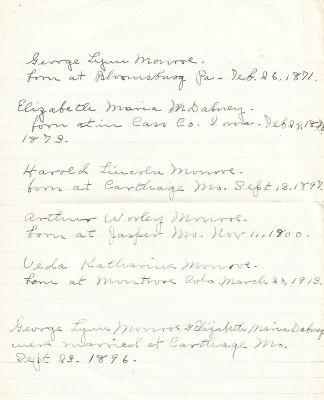 George Lynn Monroe.
born at Bloomsburg Pa - Feb. 26, 1871.
Elizabeth Maria McDabney.
born at in Cass Co. Iowa. Feb
1873.
Harold Lincoln Monroe.
born at Carthage Mo. Sept 13, 1897.
Arthur Worley Monroe.
born at Jasper Mo. Nov 11, 1900.
Veda Katharine Monroe.
born at Montrose Colo. March 23, 1913.
George Lynn Monroe & Elizabeth Maria Dabney
were married at Carthage Mo.
Sept 23. 1896.